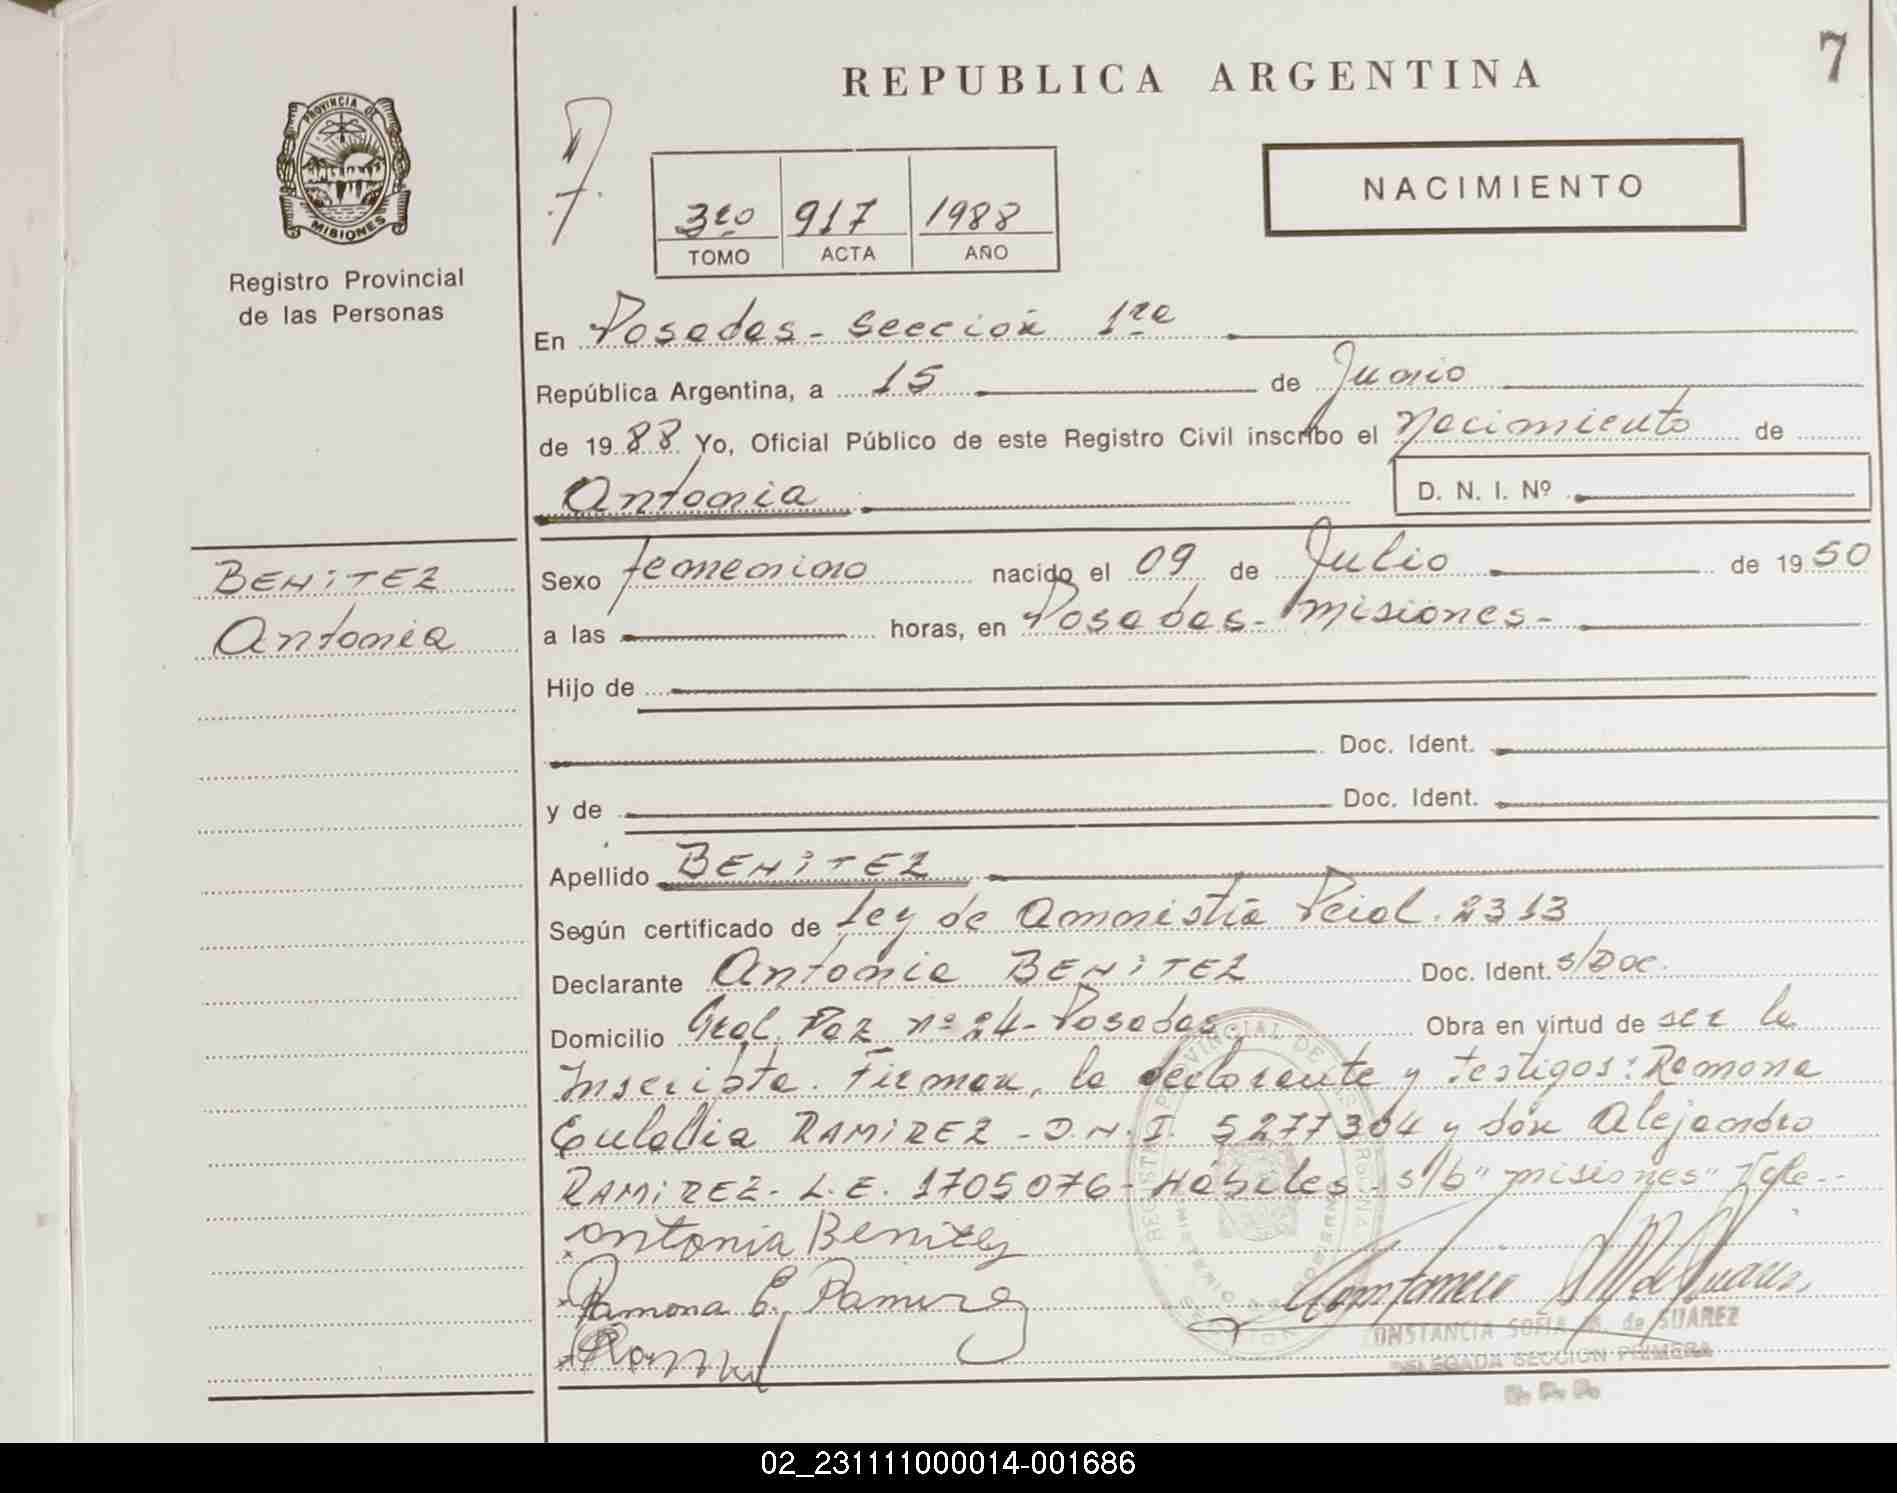 REPUBLICA ARGENTINA
7
PROVINCIA DE
MISIONES
Registro Provincial
de las Personas
NACIMIENTO
3ro 917 1988
TOMO ACTA AÑO
En Posadas - Sección 1ra
República Argentina, a 15 de Junio
de 1988 Yo, Oficial Público de este Registro Civil inscribo el Nacimiento de
Antonia D. N. I. Nº
BENiTEZ
Antonia
Sexo femenino nacido el 09 de Julio de 1950
a las horas, en Posadas - Misiones -
Hijo de
Doc. Ident.
y de Doc. Ident.
Apellido BENiTEZ
Según certificado de Ley de Amnistía Pcial. 2313
Declarante Antonia BENiTEZ Doc. Ident. s/Doc.
Domicilio Gral. Paz nº 24 - Posadas Obra en virtud de ser la
Inscripta. Firman, la declarante y testigos: Ramona
Eulalia RAMiREZ - D.N.I. 5277304 y don Alejandro
RAMiREZ - L.E. 1705076 - Hábiles s/b "misiones" Vale --
Antonia Benitez
Ramona E. Ramirez
CONSTANCIA SOFIA M. de SUAREZ
DELEGADA SECCION PRIMERA
R. P. P.
02_231111000014-001686